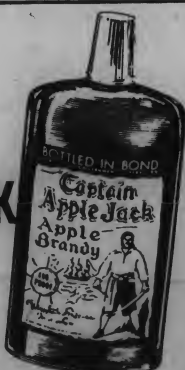 BOTTLED IN BOND
Captain
Apple Jack
Apple
Brandy
100
PROOF
K